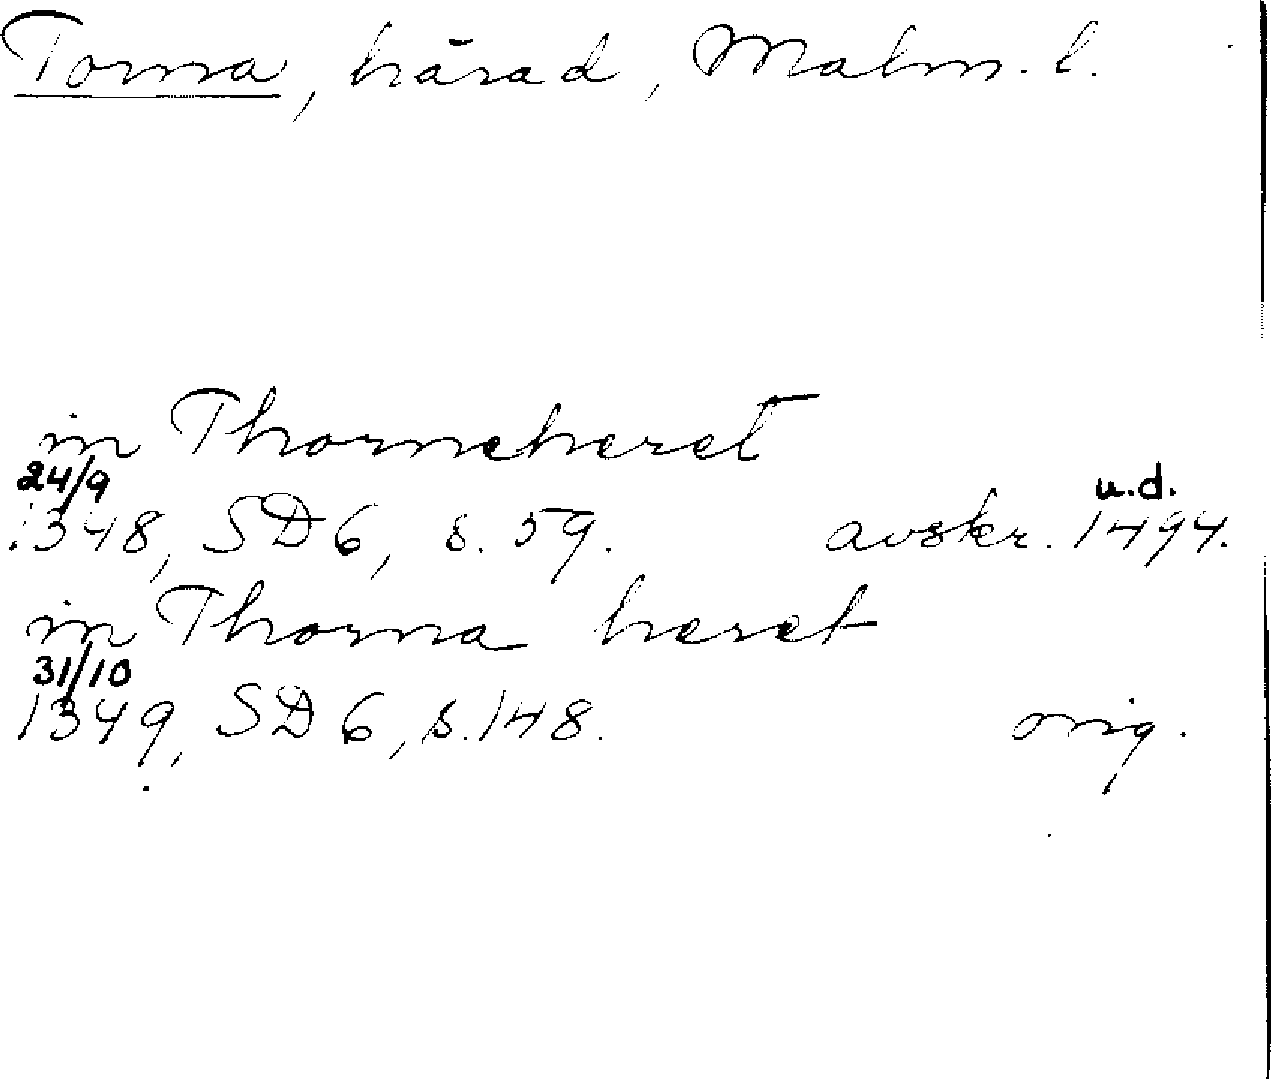 Torna, härad, Malm. l.
in Thorneheret
24/9
1348, SD 6, s. 59. avskr. u.d. 1494.
in Thorna heret
31/10
1349, SD 6, s. 148. orig.